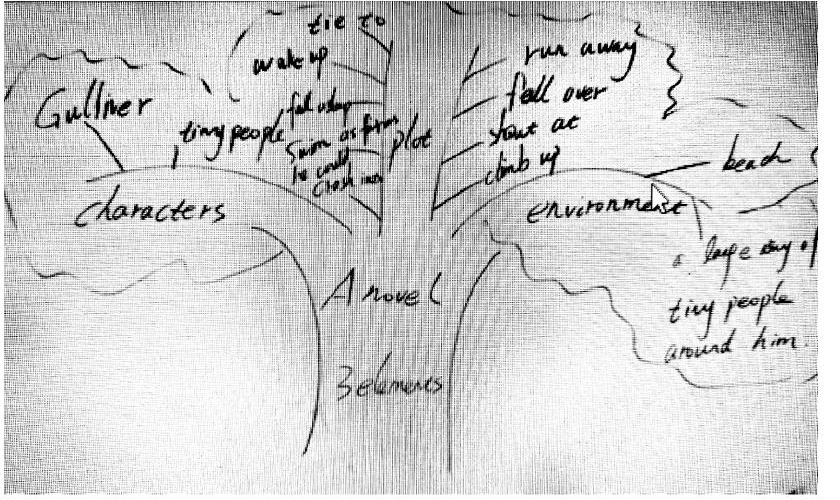 Gulliver
tiny people
characters
tie to
wake up
fall asleep
Swim as far as
he could
Crash into
plot
run away
fell over
shout at
climb up
environment
beach
a large army of
tiny people
around him.
A novel
3 elements